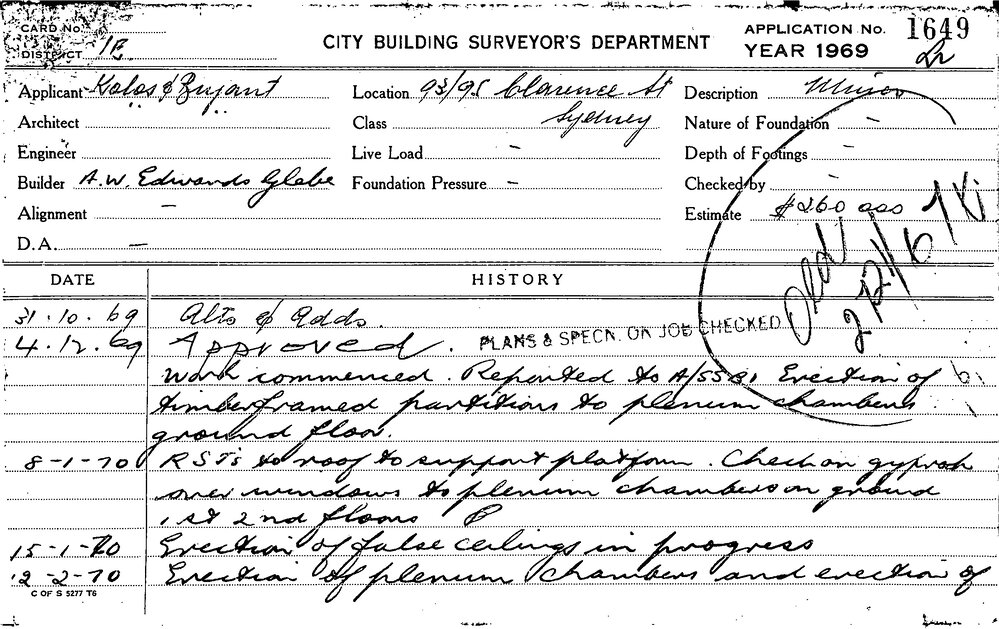 CARD No.
DISTRICT 1B
CITY BUILDING SURVEYOR'S DEPARTMENT
APPLICATION No. 1649
YEAR 1969
Applicant Kolos & Bryant
Location 93/95 Clarence St
Sydney
Description
Architect
Class
Nature of Foundation -
Engineer
Live Load -
Depth of Footings -
Builder A.W. Edwards Glebe
Foundation Pressure -
Checked by -
Alignment -
Estimate $260 000
D.A. -
DATE HISTORY
31.10.69 Alts & Adds.
4.12.69 Approved. PLANS & SPECN. ON JOB CHECKED
Work commenced. Reported to A/SSB1 Erection of
timber framed partitions to plenum chambers
ground floor.
8-1-70 RSJ's to roof to support platform. Check on gyprock
over windows to plenum chambers on ground
1st 2nd floors
15-1-70 Erection of false ceilings in progress
12-2-70 Erection of plenum chambers and erection of
C OF S 5277 T6